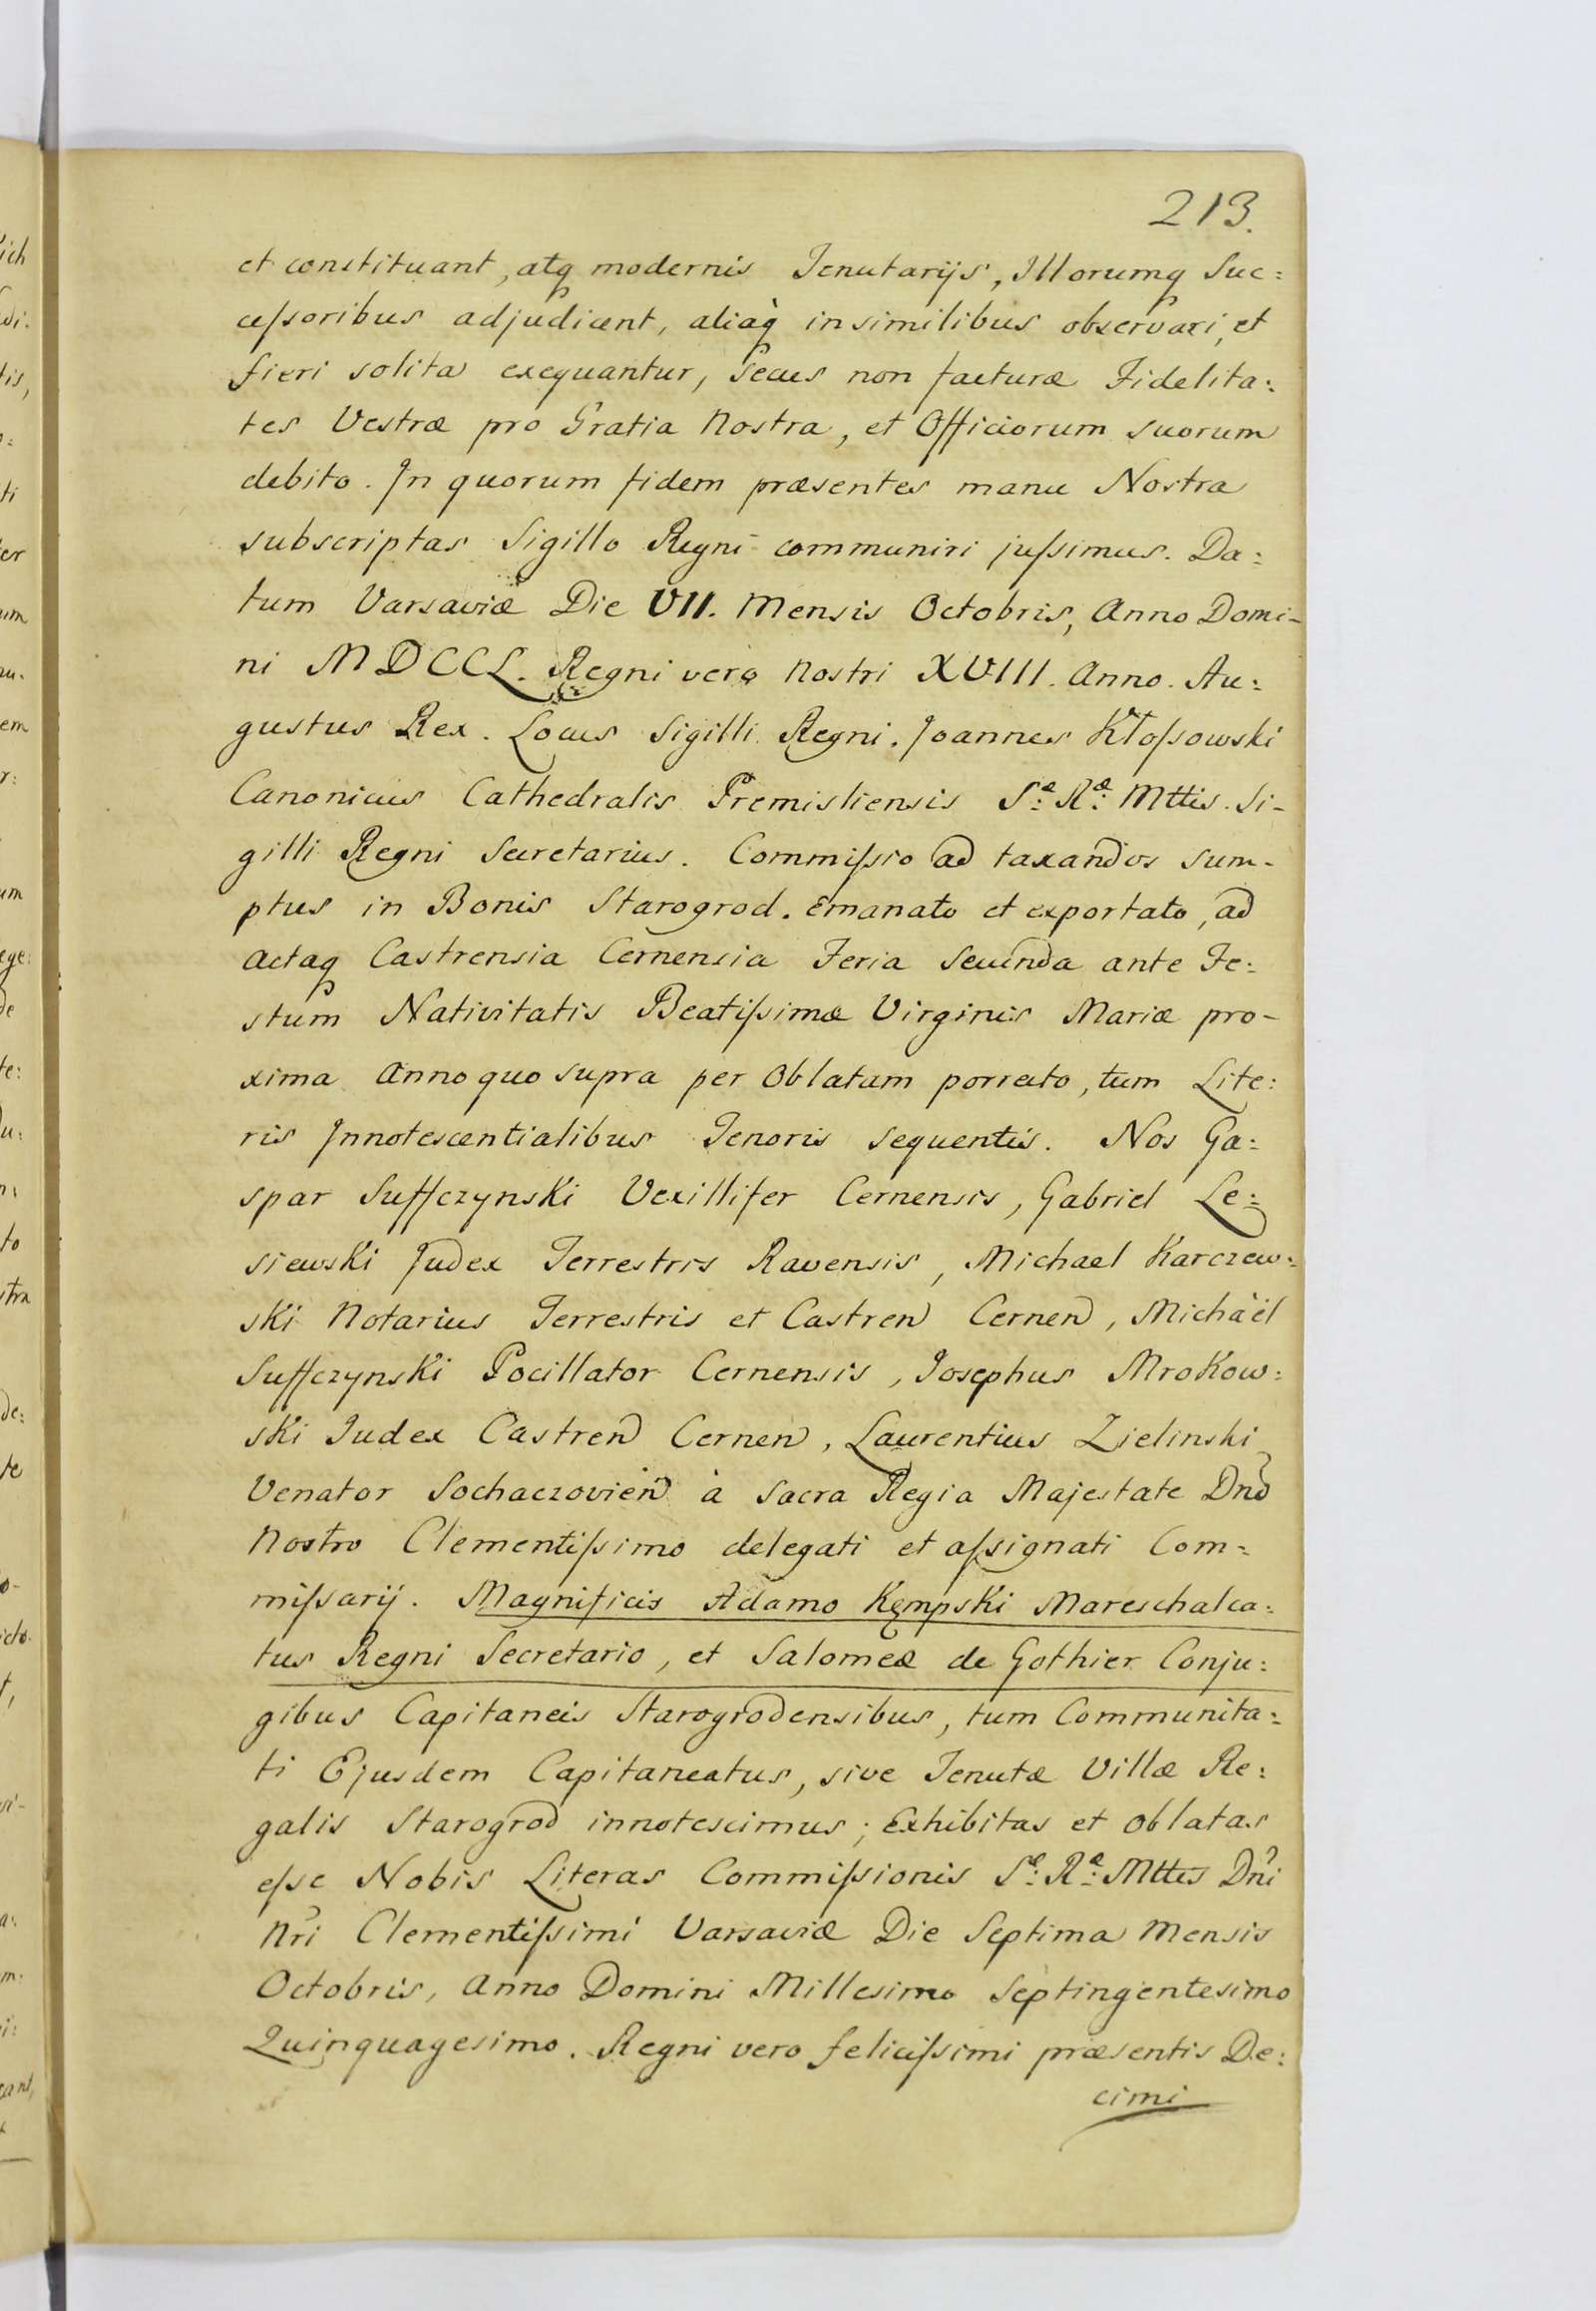 213.
et constituant, atq modernis Tenutarijs, Illorumq Suc:
ceſsoribus adjudicent, aliaq̀ in similibus observari, et
fieri solita exequantur, Secus non facturæ Fidelita:
tes Vestræ pro Gratia Nostra, et Officiorum suorum
debito. In quorum fidem præsentes manu Nostra
subscriptas Sigillo Regni communiri juſsimus. Da:
tum Varsaviæ Die VII. Mensis Octobris, Anno Domi-
ni MDCCL. Regni vero Nostri XVIII. Anno. Au:
gustus Rex. Locus Sigilli Regni. Joannes Kłoſsowski
Canonicus Cathedralis Premisliensis S:æ R:æ Mttis. Si-
gilli Regni Secretarius. Commiſsio ad taxandos sum-
ptus in Bonis Starogrod. Emanato et exportato, ad
actaq Castrensia Cernensia Feria Secunda ante Fe:
stum Nativitatis Beatiſsimæ Virginis Mariæ pro-
xima Anno quo supra per Oblatam porrecto, tum Lite:
ris Innotescentialibus Tenoris sequentis. Nos Ga:
spar Suffczynski Vexillifer Cernensis, Gabriel Le:
siewski Judex Terrestris Ravensis, Michael Karczew:
ski Notarius Terrestris et Castren Cernen, Michaël
Suffczynski Pocillator Cernensis, Josephus Mrokow:
ski Judex Castren Cernen, Laurentius Zielinski
Venator Sochaczovien à Sacra Regia Majestate Dnō
Nostro Clementiſsimo delegati et aſsignati Com:
miſsarij. Magnificis Adamo Kęmpski Mareschalca:
tus Regni Secretario, et Salomeæ de Gothier Conju:
gibus Capitaneis Starogrodensibus, tum Communita:
ti Ejusdem Capitaneatus, sive Tenutæ Villæ Re:
galis Starogrod innotescimus; Exhibitas et oblatas
eſse Nobis Literas Commiſsionis S:æ R:æ Mttis Dni
Nri Clementiſsimi Varsaviæ Die Septima Mensis
Octobris, Anno Domini Millesimo Septingentesimo
Quinquagesimo. Regni vero feliciſsimi præsentis De:
cimi